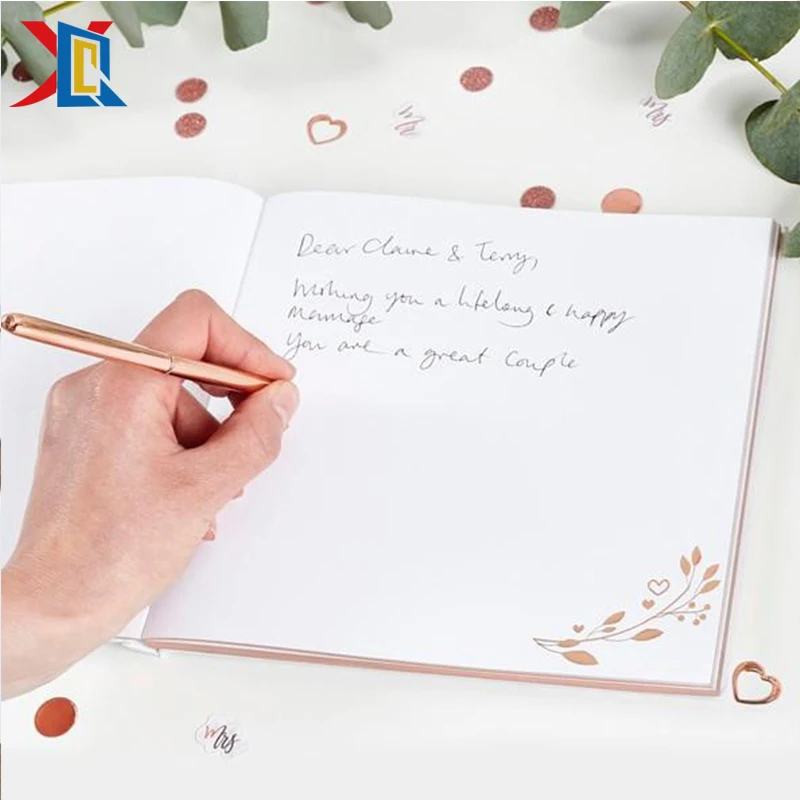 Mrs
Mrs
Dear Claire & Terry,
Wishing you a lifelong & happy
marriage
You are a great couple
Mrs